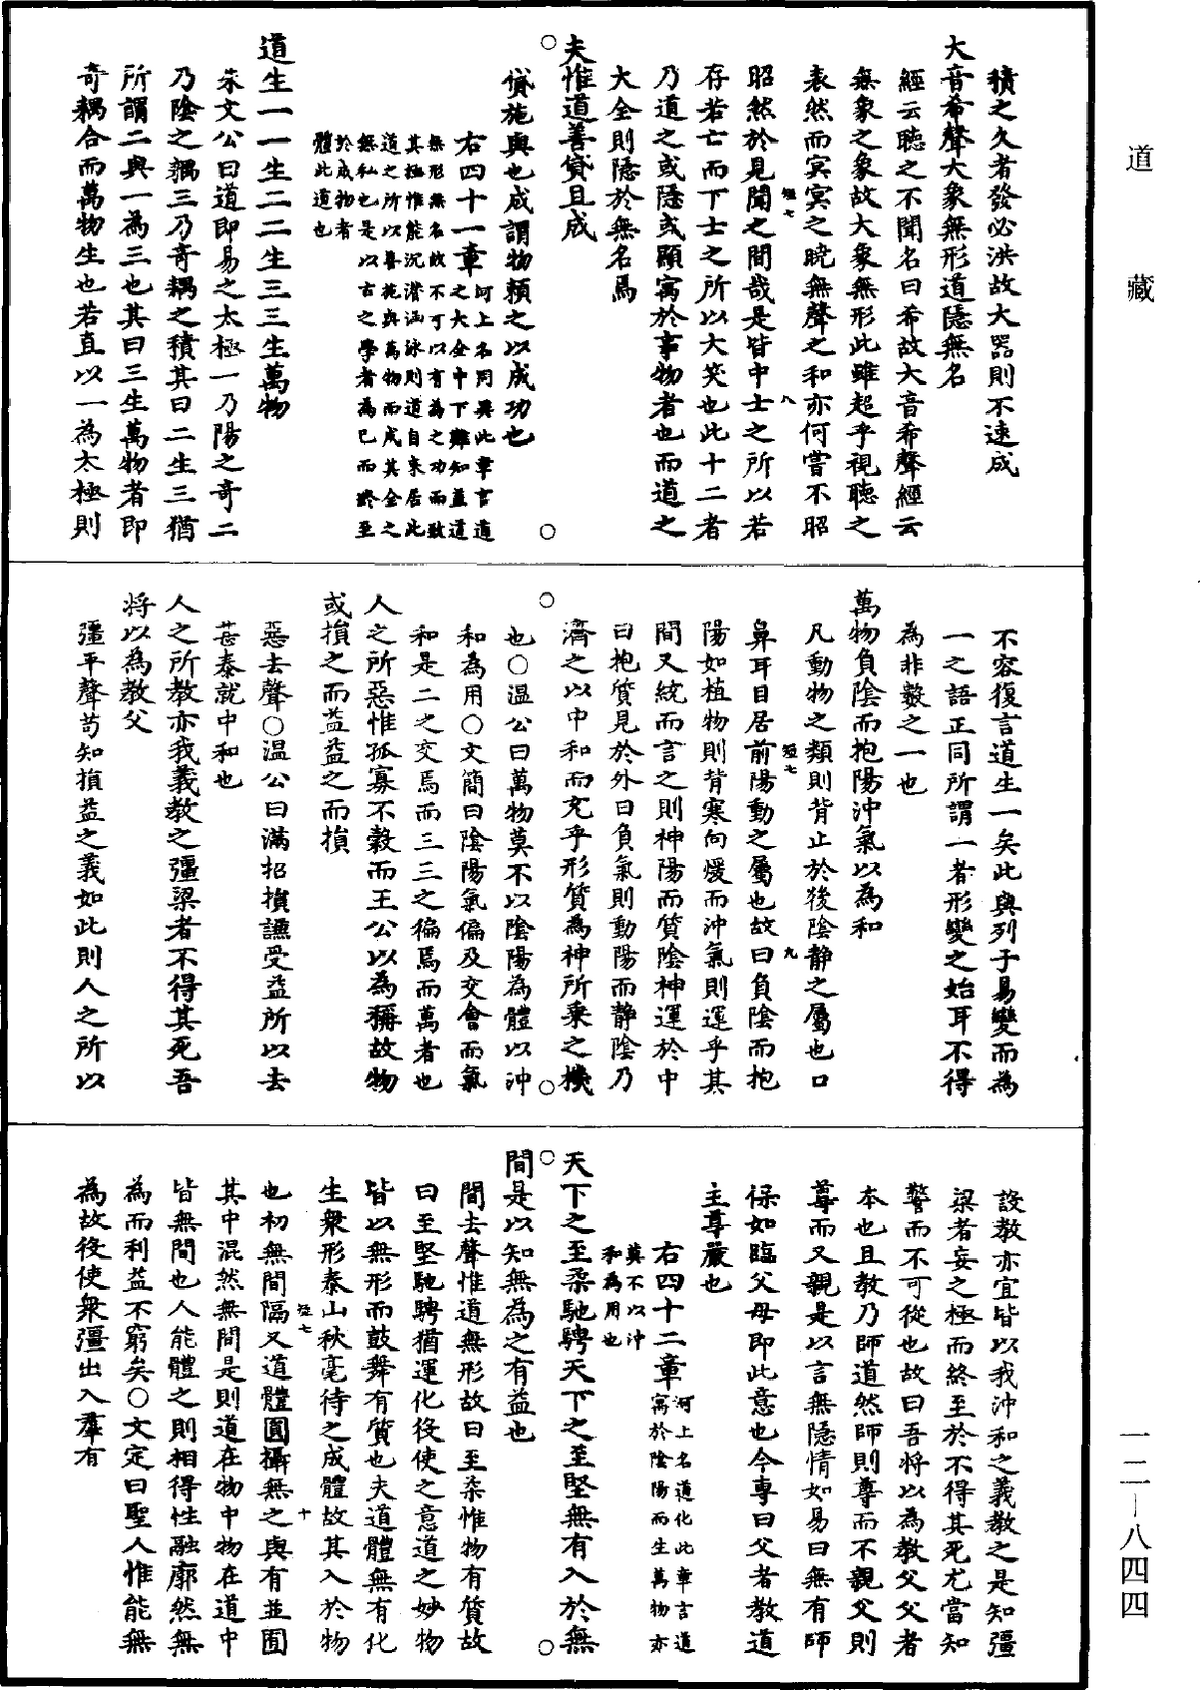 道藏
一二—八四四
積之久者發必洪故大器則不速成
大音希聲大象無形道隱無名
經云聽之不聞名曰希故大音希聲經云
無象之象故大象無形此雖超乎視聽之
表然而冥冥之曉無聲之和亦何嘗不昭
短七
八
昭然於見聞之間哉是皆中士之所以若
存若亡而下士之所以大笑也此十二者
乃道之或隱或顯寓於事物者也而道之
大全則隱於無名焉
夫惟道善貸且成
貸施與也成謂物賴之以成功也
右四十一章
河上名同異此章言道
之大全中下難知蓋道
無形無名故不可以有為之功而致
其極惟能沉潛涵泳則道自來居此
道之所以善施與萬物而成其全之
無私也是以古之學者為己而終至
於成物者
體此道也
道生一一生二二生三三生萬物
朱文公曰道即易之太極一乃陽之奇二
乃陰之耦三乃奇耦之積其曰二生三猶
所謂二與一為三也其曰三生萬物者即
奇耦合而萬物生也若直以一為太極則
不容復言道生一矣此與列子易變而為
一之語正同所謂一者形變之始耳不得
為非數之一也
萬物負陰而抱陽沖氣以為和
凡動物之類則背止於後陰靜之屬也口
短七
九
鼻耳目居前陽動之屬也故曰負陰而抱
陽如植物則背寒向煖而沖氣則運乎其
間又統而言之則神陽而質陰神運於中
曰抱質見於外曰負氣則動陽而靜陰乃
濟之以中和而充乎形質為神所乘之機
也○溫公曰萬物莫不以陰陽為體以沖
和為用○文簡曰陰陽氣偏及交會而氣
和是二之交焉而三三之徧焉而萬者也
人之所惡惟孤寡不穀而王公以為稱故物
或損之而益益之而損
惡去聲○溫公曰滿招損謙受益所以去
甚泰就中和也
人之所教亦我義教之彊梁者不得其死吾
將以為教父
彊平聲苟知損益之義如此則人之所以
設教亦宜皆以我沖和之義教之是知彊
梁者妄之極而終至於不得其死尤當知
警而不可從也故曰吾將以為教父父者
本也且教乃師道然師則尊而不親父則
尊而又親是以言無隱情如易曰無有師
保如臨父母即此意也今專曰父者教道
主尊嚴也
右四十二章
河上名道化此章言道
寓於陰陽而生萬物亦
莫不以沖
和為用也
天下之至柔馳騁天下之至堅無有入於無
間是以知無為之有益也
間去聲惟道無形故曰至柔惟物有質故
曰至堅馳騁猶運化役使之意道之妙物
皆以無形而鼓舞有質也夫道體無有化
生衆形泰山秋毫待之成體故其入於物
短七
十
也初無間隔又道體圓攝無之與有並囿
其中混然無間是則道在物中物在道中
皆無間也人能體之則相得性融廓然無
為而利益不窮矣○文定曰聖人惟能無
為故役使衆彊出入羣有